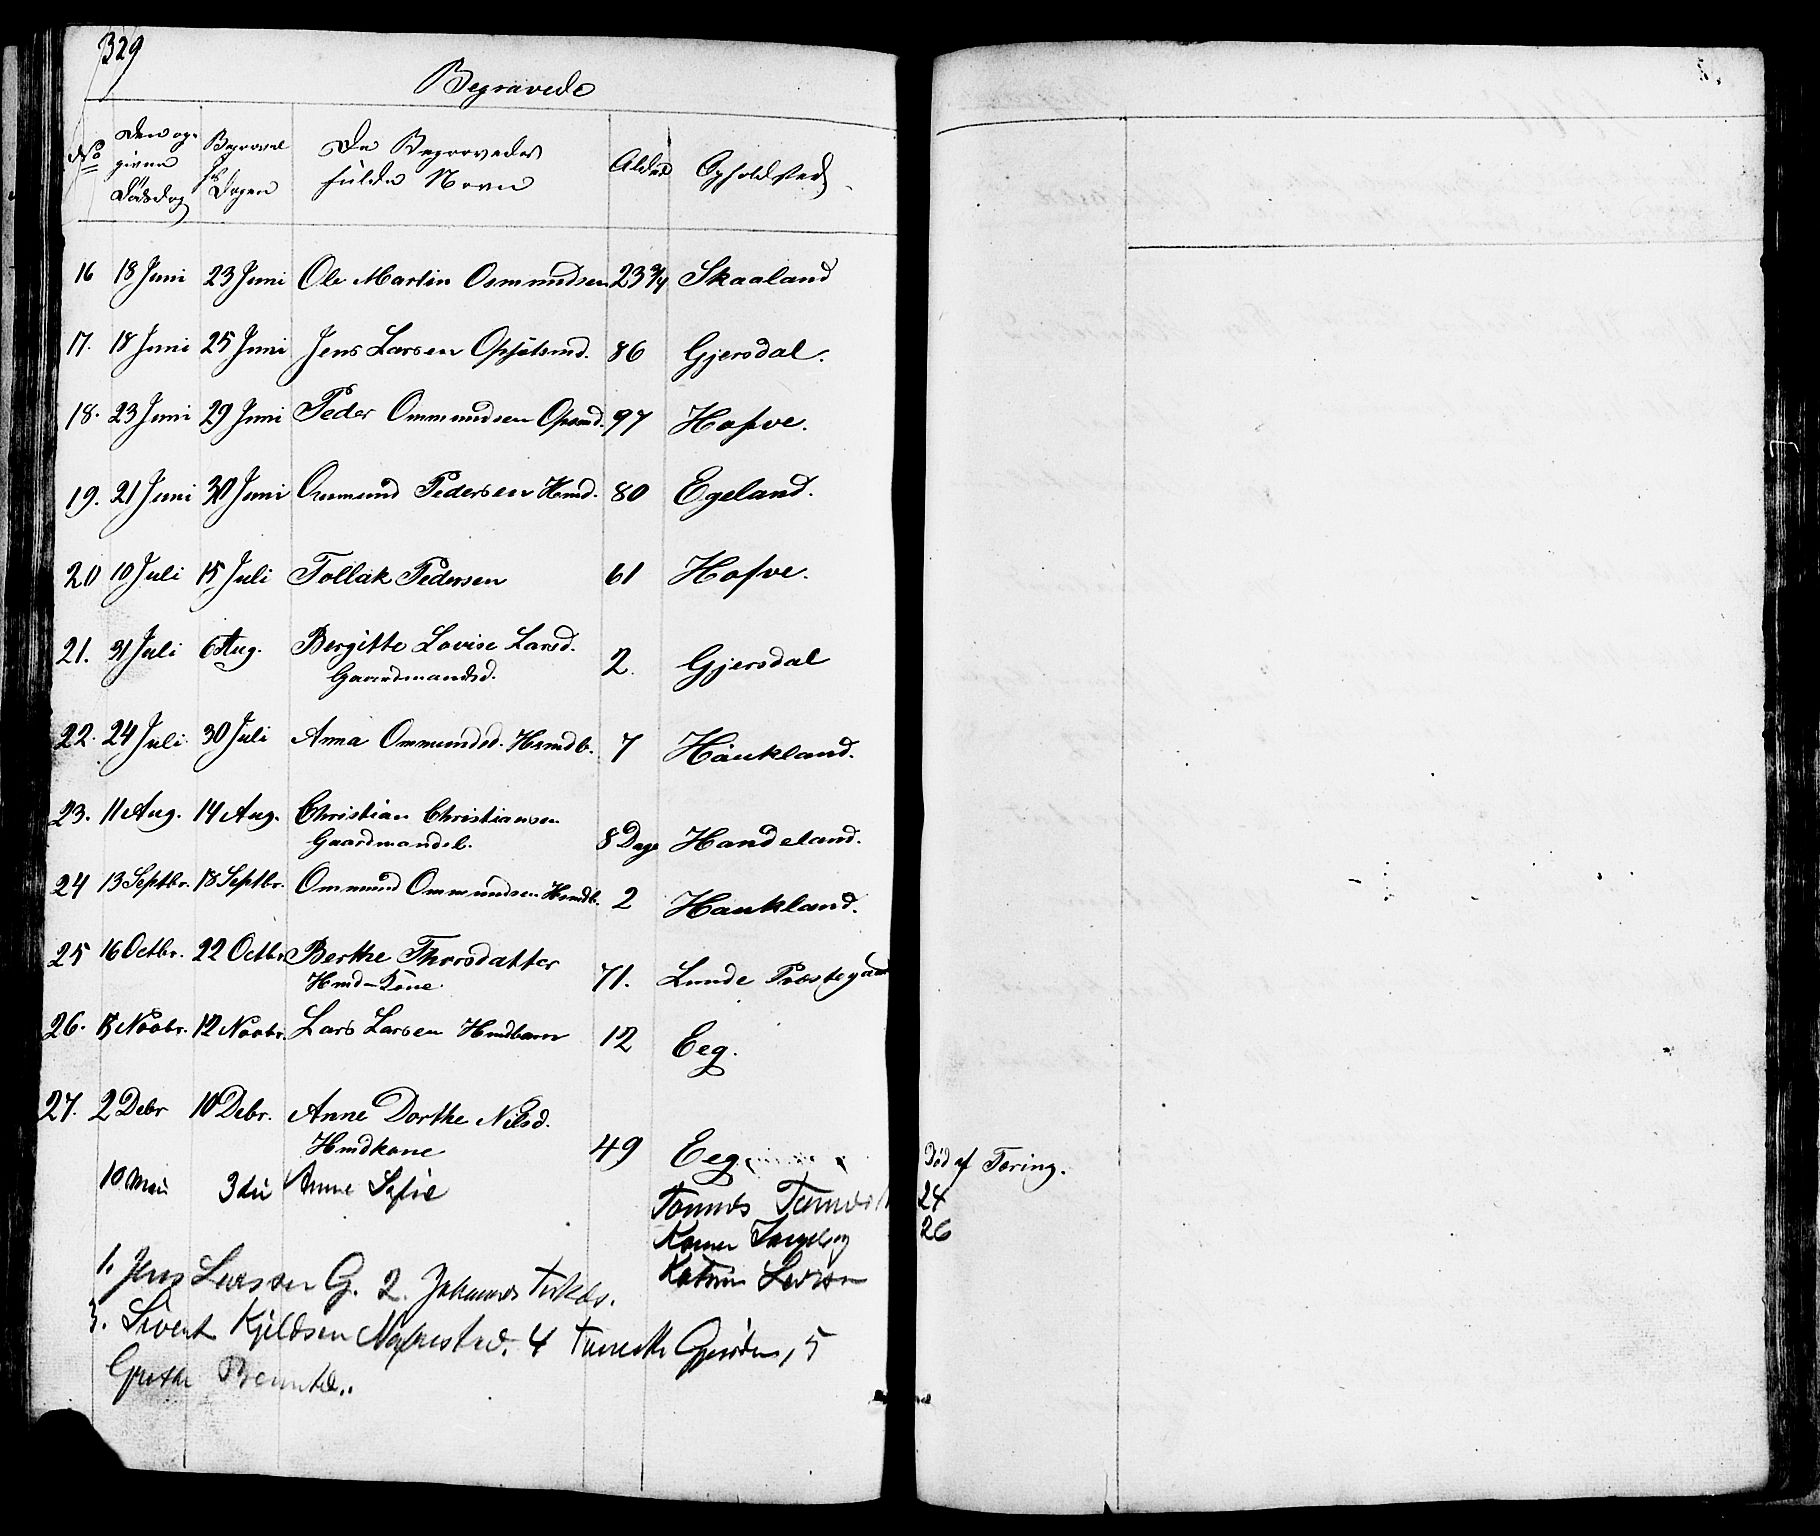 329
Begravede
No
Den opgivne Dødsdag
Begravelses Dagen
De Begravedes fulde Navn
Alder
Opholdsted
16 18 Juni 23 Juni Ole Martin Osmundsen 23 3/4 Skaaland
17. 18 Juni 25 Juni Jens Larsen 86 Gjersdal.
18. 23 Juni 29 Juni Peder Ommundsen 97 Hofve.
19. 21 Juni 30 Juni Ommund Pedersen Hmd. 80 Egeland.
20 10 Juli 15 Juli Tollak Pedersen 61 Hofve.
21. 31 Juli 6 Aug. Bergitte Lovise Larsd.
Gaardmandsd. 2. Gjersdal
22. 24 Juli 30 Juli Anna Ommundsd. Hsmdb. 7 Haukland.
23. 11 Aug. 14 Aug. Christian Christiansen
Gaardmandsb. 8 Dage Handeland.
24 13 Septbr. 18 Septbr. Ommund Ommundsen Hsmdb. 2 Haukland.
25 16 Octbr. 22 Octbr. Berthe Thorsdatter
Hmd-Kone. 71. Lunde Præstegaar
26. 5 Novbr. 12 Novbr. Lars Larsen Hmdbarn 12 Eeg.
27. 2 Debr 10 Debr. Anne Dorthe Nilsd.
Hmdkone 49 Eeg Død af Tæring.
10 Mai 3di Anne Sofie
Tonnes 24
26
1. Jens Larsen G. 2. Johannes
3. Sivert Kjeldsen 4 5